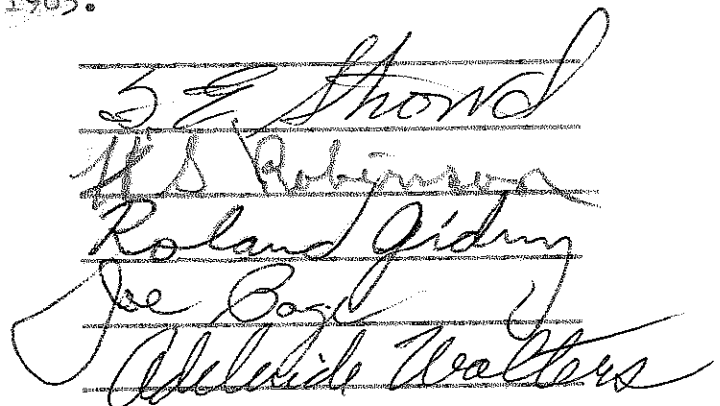 1965.
S. E. Shond
H. S. Robinson
Roland Giduz
Joe
Adelaide Walters